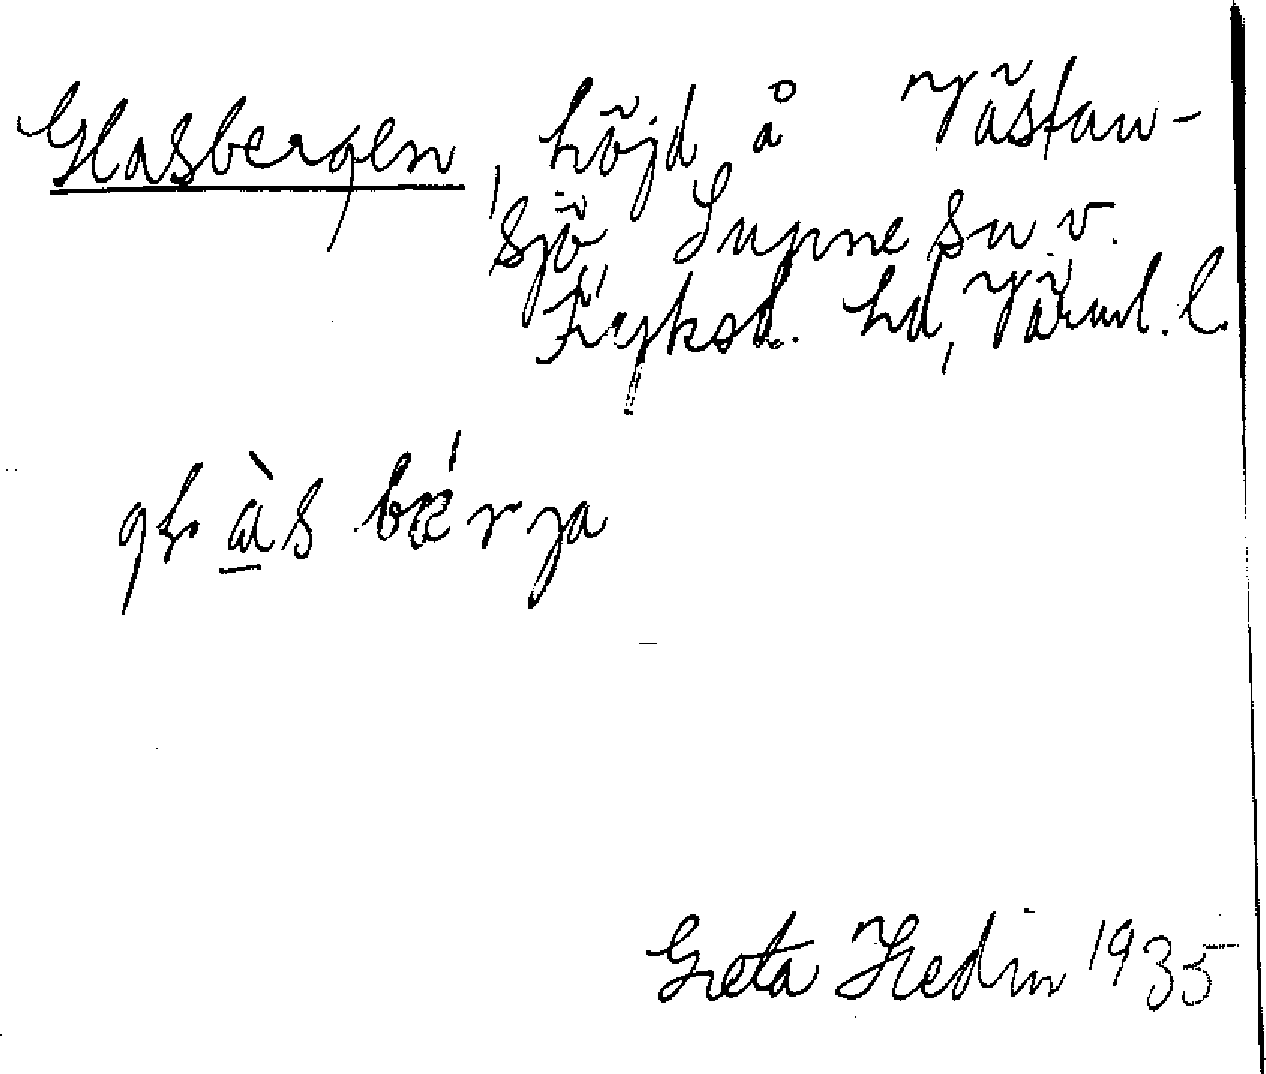 Glasbergen, höjd å Västan-
sjö, Sunne sn v.
Fryksd. hd, Värml. l.
gɫàs bǽrja
Greta Hedin 1935